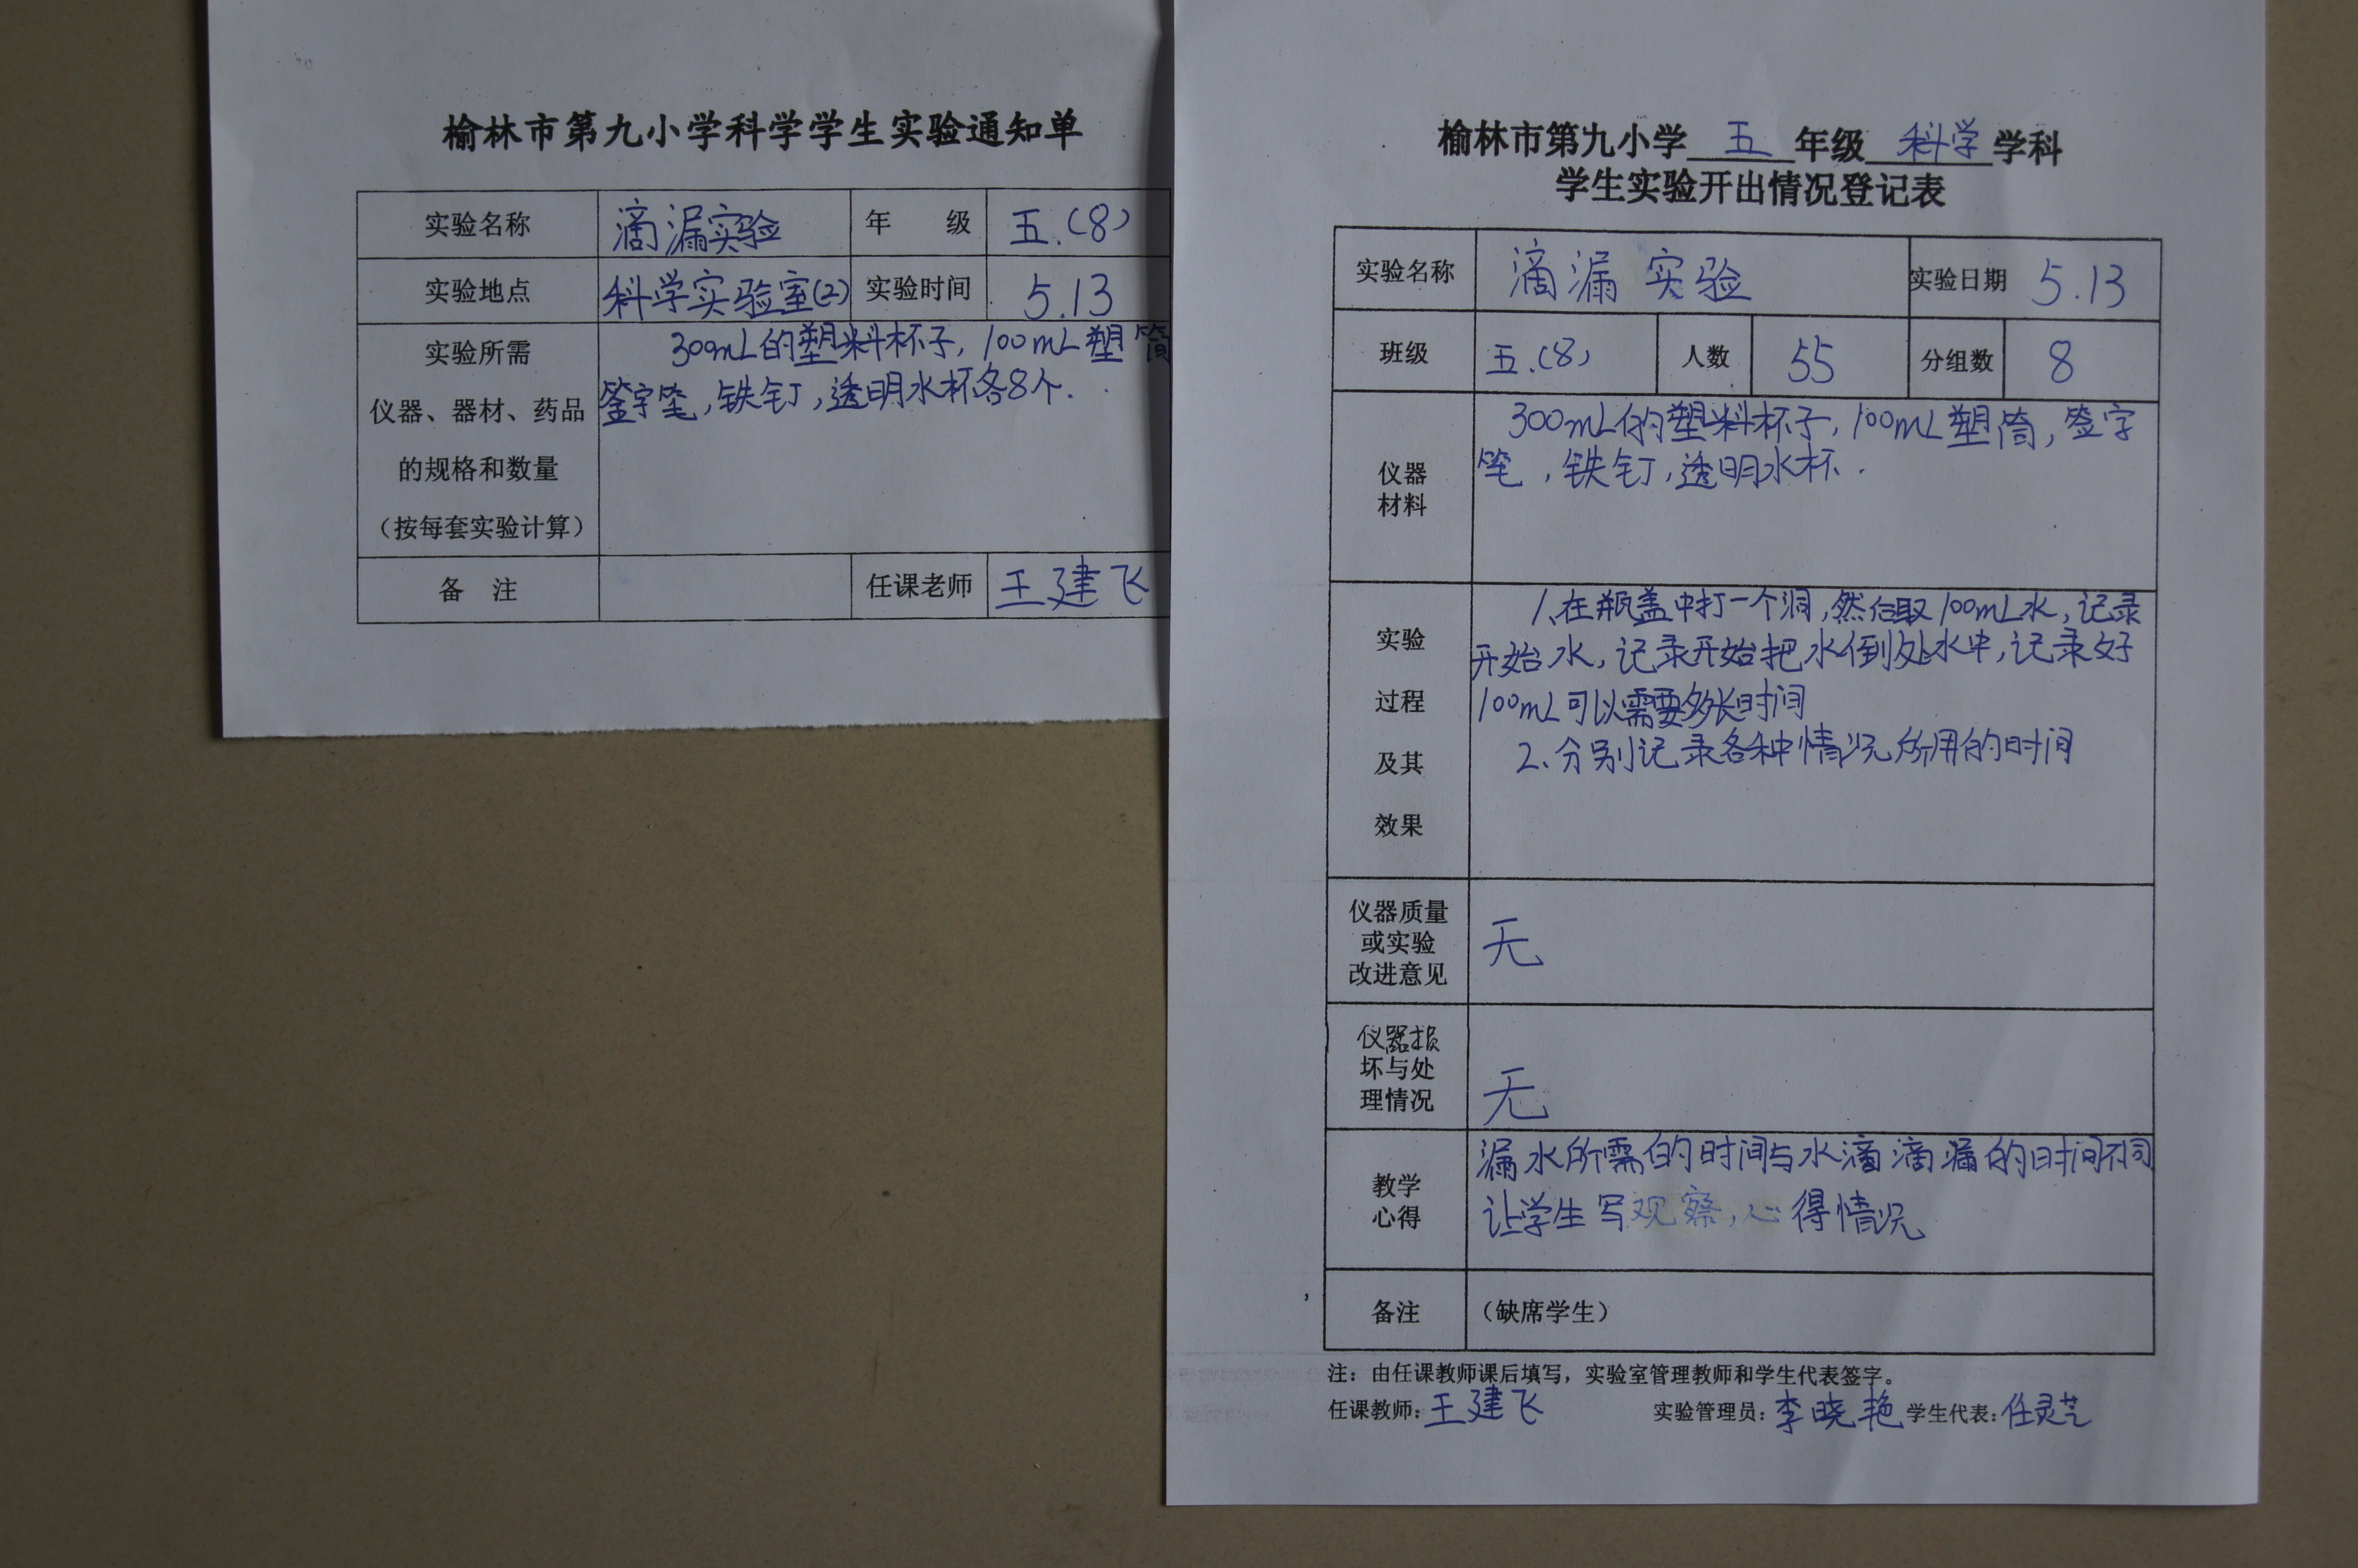 榆林市第九小学科学学生实验通知单
实验名称 滴漏实验 年 级 五.(8)
实验地点 科学实验室(2) 实验时间 5.13
实验所需
仪器、器材、药品
的规格和数量
(按每套实验计算)
300mL的塑料杯子,100mL塑筒
签字笔,铁钉,透明水杯各8个.
备 注 任课老师 王建飞
榆林市第九小学 五 年级 科学 学科
学生实验开出情况登记表
实验名称 滴漏实验 实验日期 5.13
班级 五.(8) 人数 55 分组数 8
仪器
材料
300mL的塑料杯子,100mL塑筒,签字
笔,铁钉,透明水杯.
实验
过程
及其
效果
1、在瓶盖中打一个洞,然后取100mL水,记录
开始水,记录开始把水倒处水中,记录好
100mL可以需要多长时间
2、分别记录各种情况所用的时间
仪器质量
或实验
改进意见
无
仪器损
坏与处
理情况
无
教学
心得
漏水所需的时间与水滴滴漏的时间不同
让学生写观察,心得情况
备注 (缺席学生)
注:由任课教师课后填写,实验室管理教师和学生代表签字。
任课教师:王建飞 实验管理员:李晓艳 学生代表:任灵芝